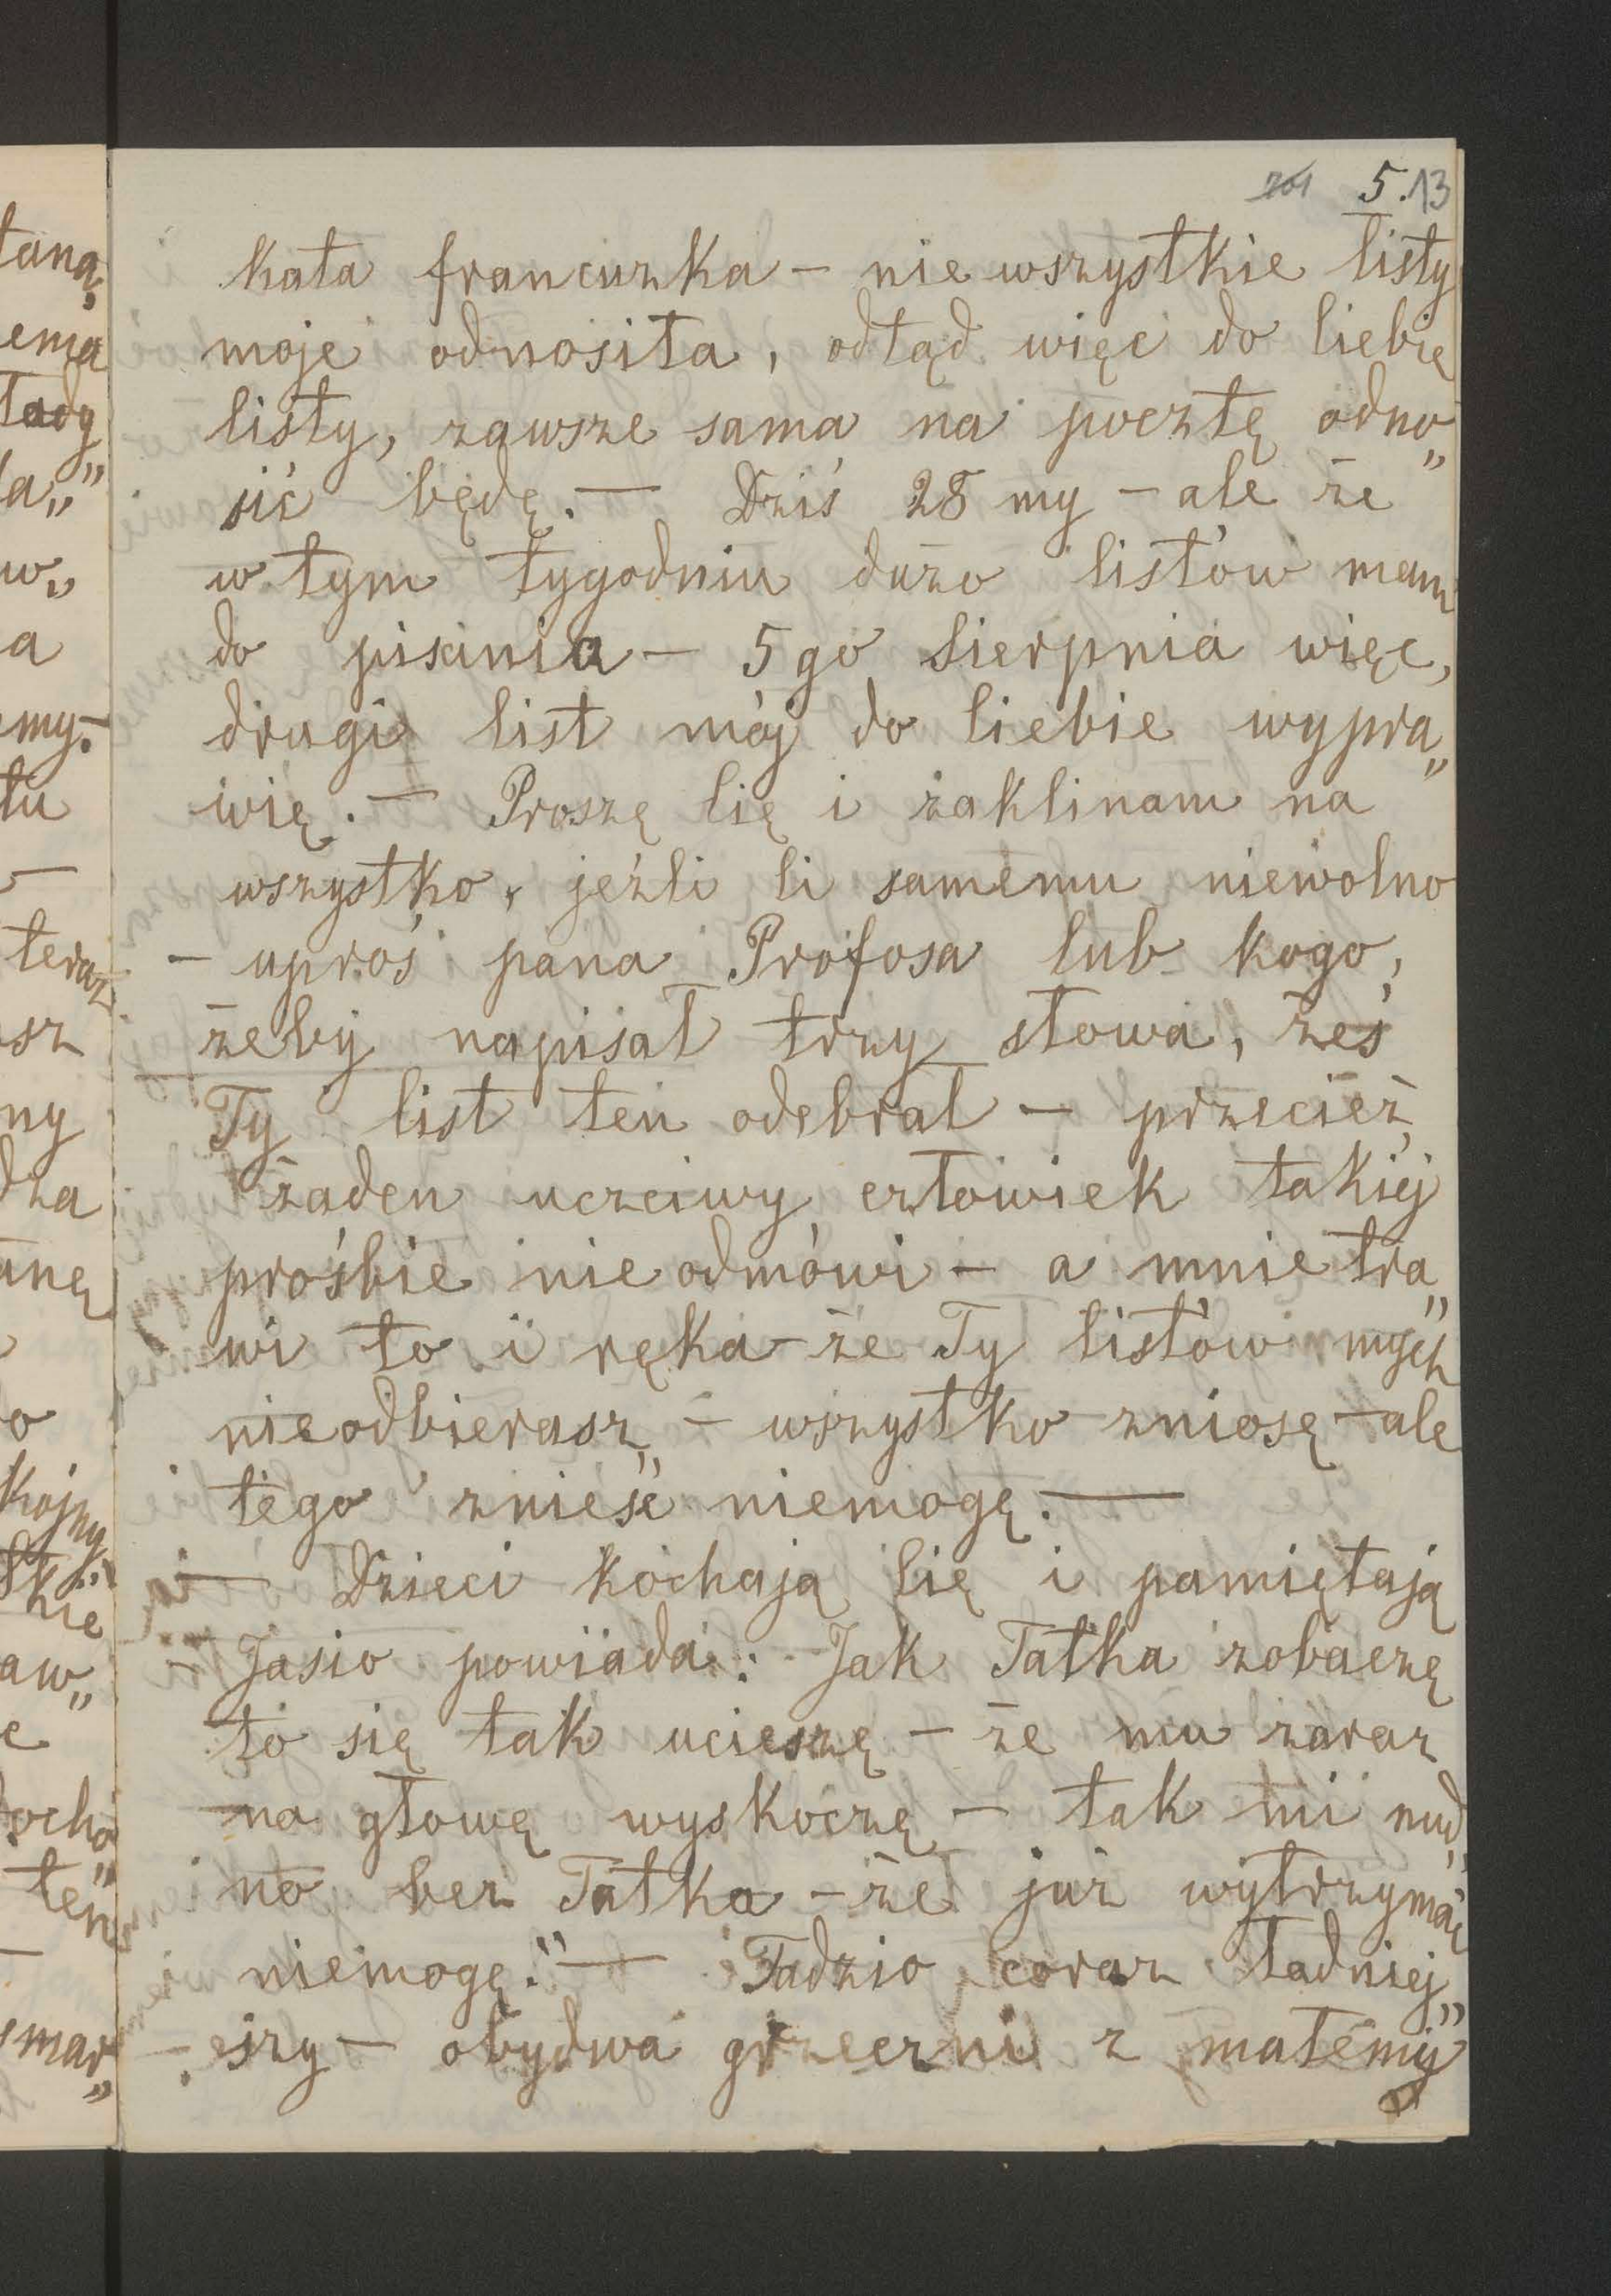 201 5.13
kała francuzka – nie wszystkie listy
moje odnosiła, odtąd więc do Ciebie
listy, zawsze sama na pocztę odno„
sić będę. — Dziś 28 my – ale że
w tym tygodniu dużo listów mam
do pisania – 5go Sierpnia więc,
drugi list mój do Ciebie wypra„
wię. — Proszę Cię i zaklinam na
wszystko, jeźli Ci samemu niewolno
– uproś pana Profosa lub kogo,
żeby napisał trzy słowa, żeś
Ty list ten odebrał – przecież
żaden uczciwy człowiek takiej
prośbie nie odmówi – a mnie tra„
wi to i nęka – że Ty listów mych
nie odbierasz, – wszystko zniosę – ale
tego znieść niemogę. —
— Dzieci kochają Cię i pamiętają
– Jasio powiada: Jak Tatka zobaczę
to się tak ucieszę – że mu zaraz
na głowę wyskoczę – tak mi nud„
no bez Tatka – że już wytrzymać
niemogę." — Tadzio coraz ładniej„
szy – obydwa grzeczni z małemy
taną,
enia
tady
a„
w„
a
my. –
tu
—
teraz
sz
ny
dza
anę
o
kojny
skie
aw„
e
ocho„
ten
—
smar„